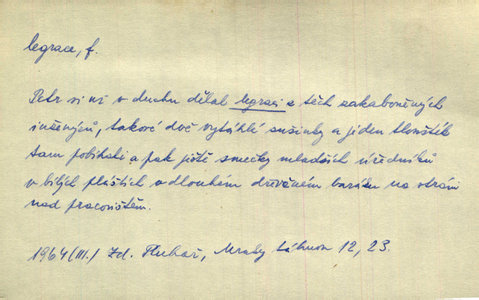 legrace, f.
Petr si už v duchu dělal legraci z těch zakaboněných
inženýrů, takové dvě vytáhlé sušinky a jeden tlouštík
tam pobíhali a pak ještě smečky mladších úředníků
v bílých pláštích v dlouhém dřevěném baráku na stráni
nad pracovištěm.
1964 (III.) Zd. Pluhař, Mraky táhnou 12, 23.